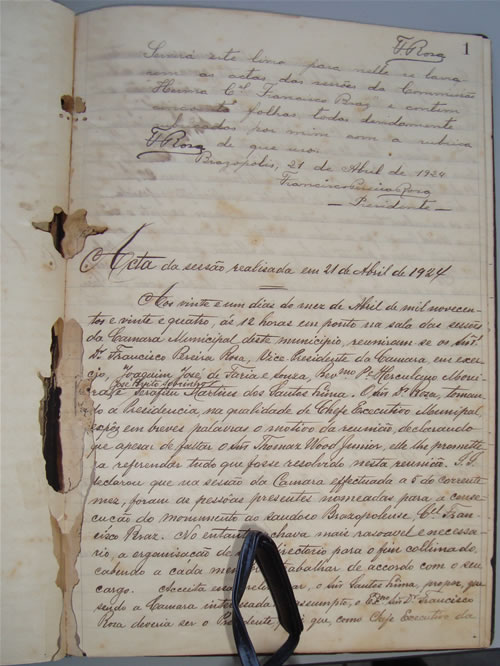 FRosa
1
Servirá este livro para nelle se lava-
rem as actas das sessões da Commissão
Herma Cel. Francisco Braz e contem
cincoenta folhas todas devidamente
por mim com a rubrica
FRosa de que uso.
Brazopolis, 21 de Abril de 1924
Francisco Pereira Rosa
— Presidente —
Acta da sessão realisada em 21 de Abril de 1924
Aos vinte e um dias do mez de Abril de mil novecen-
tos e vinte e quatro, ás 12 horas em ponto na sala das sessões
da Camara Municipal deste municipio, reuniram-se os Snrs.
Dr. Francisco Pereira Rosa, Vice Presidente da Camara em exer-
cicio, Joaquim José de Faria e Souza, Revmo Pe. Herculano
José Brito Sobrinho
e Serafim Martins dos Santos Lima. O Snr. Dr. Rosa, toman-
do a Presidencia, na qualidade de Chefe Executivo Municipal
expoz em breves palavras o motivo da reunião, declarando
que apesar de faltar o Snr. Thomaz Wood Junior, elle lhe promette-
ra referendar tudo que fosse resolvido nesta reunião. S. S.
declarou que na sessão da Camara effectuada a 5 do corrente
mez, foram as pessôas presentes nomeadas para a conse-
cução do monumento ao saudoso Brazopolense, Cel. Fran-
cisco Braz. No entanto achava mais rasoavel e necessa-
rio, a organisação de directorio para o fim collimado
cabendo a cáda trabalhar de accordo com o seu
cargo. Acceita o Snr. Santos Lima, propoz que
sendo a Camara interessada assumpto, o Exmo Snr. Dr. Francisco
Rosa deveria ser o Presidente, que, como Chefe Executivo da